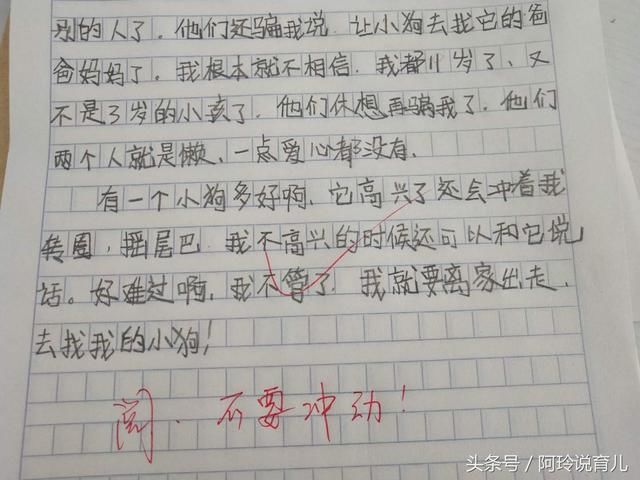 别的人了。他们还骗我说,让小狗去找它的爸
爸妈妈了。我根本就不相信,我都11岁了、又
不是3岁的小孩了。他们休想再骗我了。他们
两个人就是懒、一点爱心都没有。
有一个小狗多好啊、它高兴了还会冲着我
转圈,摇尾巴。我不高兴的时候还可以和它说
话。好难过啊,我不管了,我就要离家出走、
去找我的小狗!
阅. 不要冲动!
头条号/阿玲说育儿